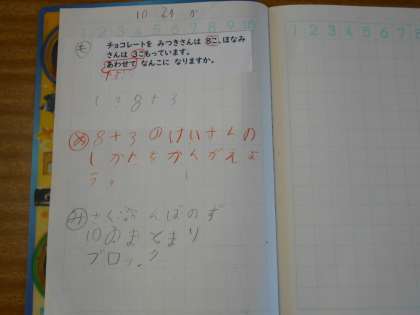 10 21 か
1 2 3 4 5 6 7 8 9 10
も
チョコレートを みつきさんは 8こ、ほなみ
さんは 3こもっています。
あわせて なんこに なりますか。
しき 8+3
め 8+3のけいさんの
しかたをかんがえよ
う。
み さくらんぼのず
10のまとまり
ブロック
1 2 3 4 5 6 7 8